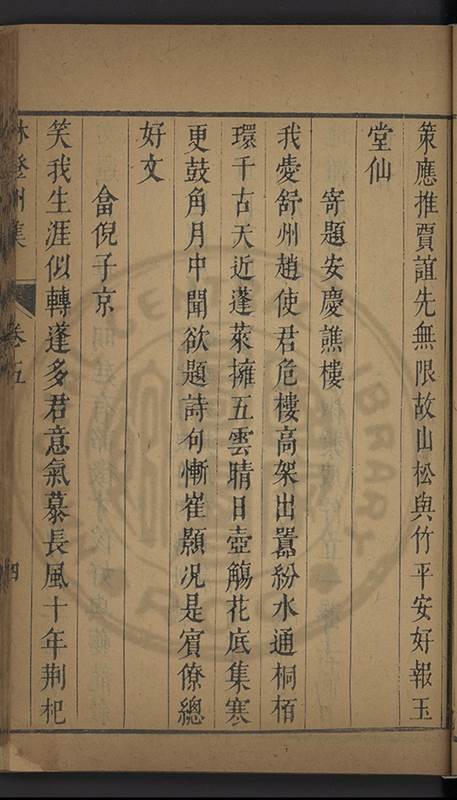 策應推賈誼先無限故山松與竹平安好報玉
堂仙
寄題安慶譙樓
我愛舒州趙使君危樓高架出囂紛水通桐栢
環千古天近蓬萊擁五雲晴日壺觴花底集寒
更鼓角月中聞欲題詩句慚崔顥况是賓僚總
好文
畣倪子京
笑我生涯似轉蓬多君意氣慕長風十年荆杞
林登州集
卷五
四